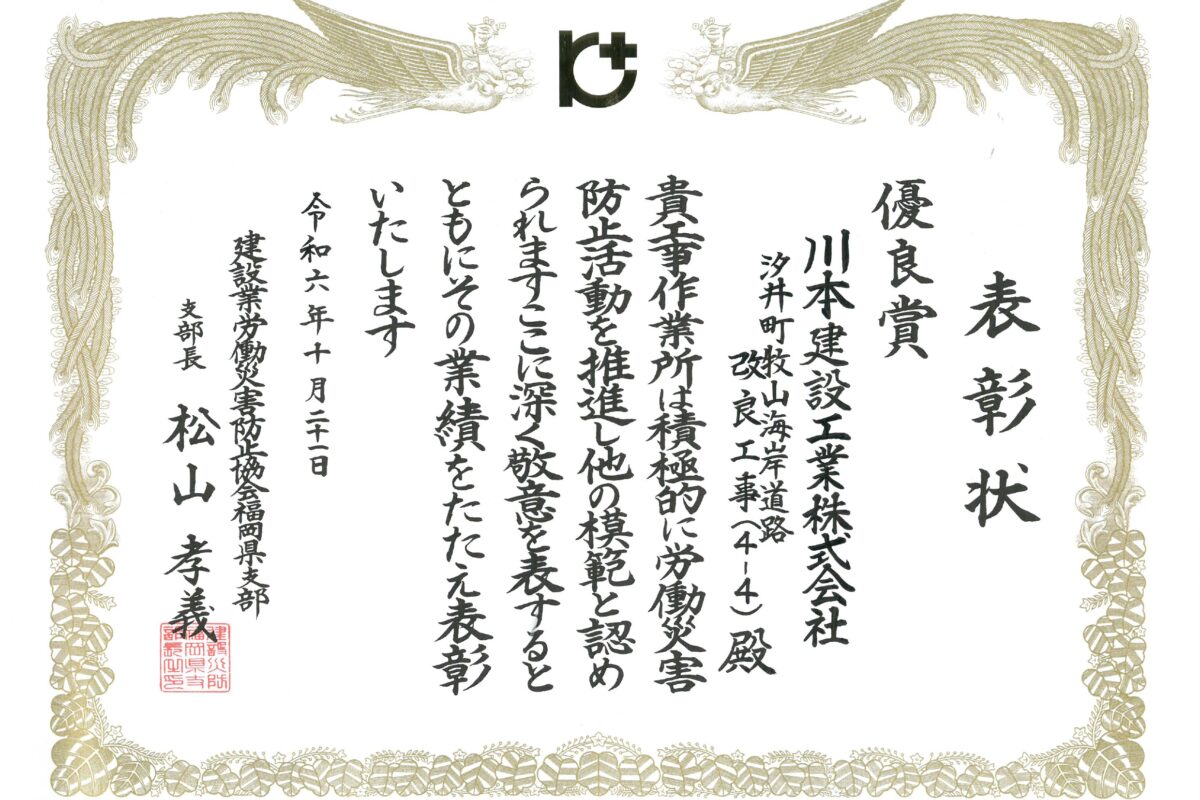 表彰状
優良賞
川本建設工業株式会社
汐井町牧山海岸道路
改良工事(4-4)殿
貴工事作業所は積極的に労働災害
防止活動を推進し他の模範と認め
られますここに深く敬意を表すると
ともにその業績をたたえ表彰
いたします
令和六年十月二十一日
建設業労働災害防止協会福岡県支部
支部長 松山孝義